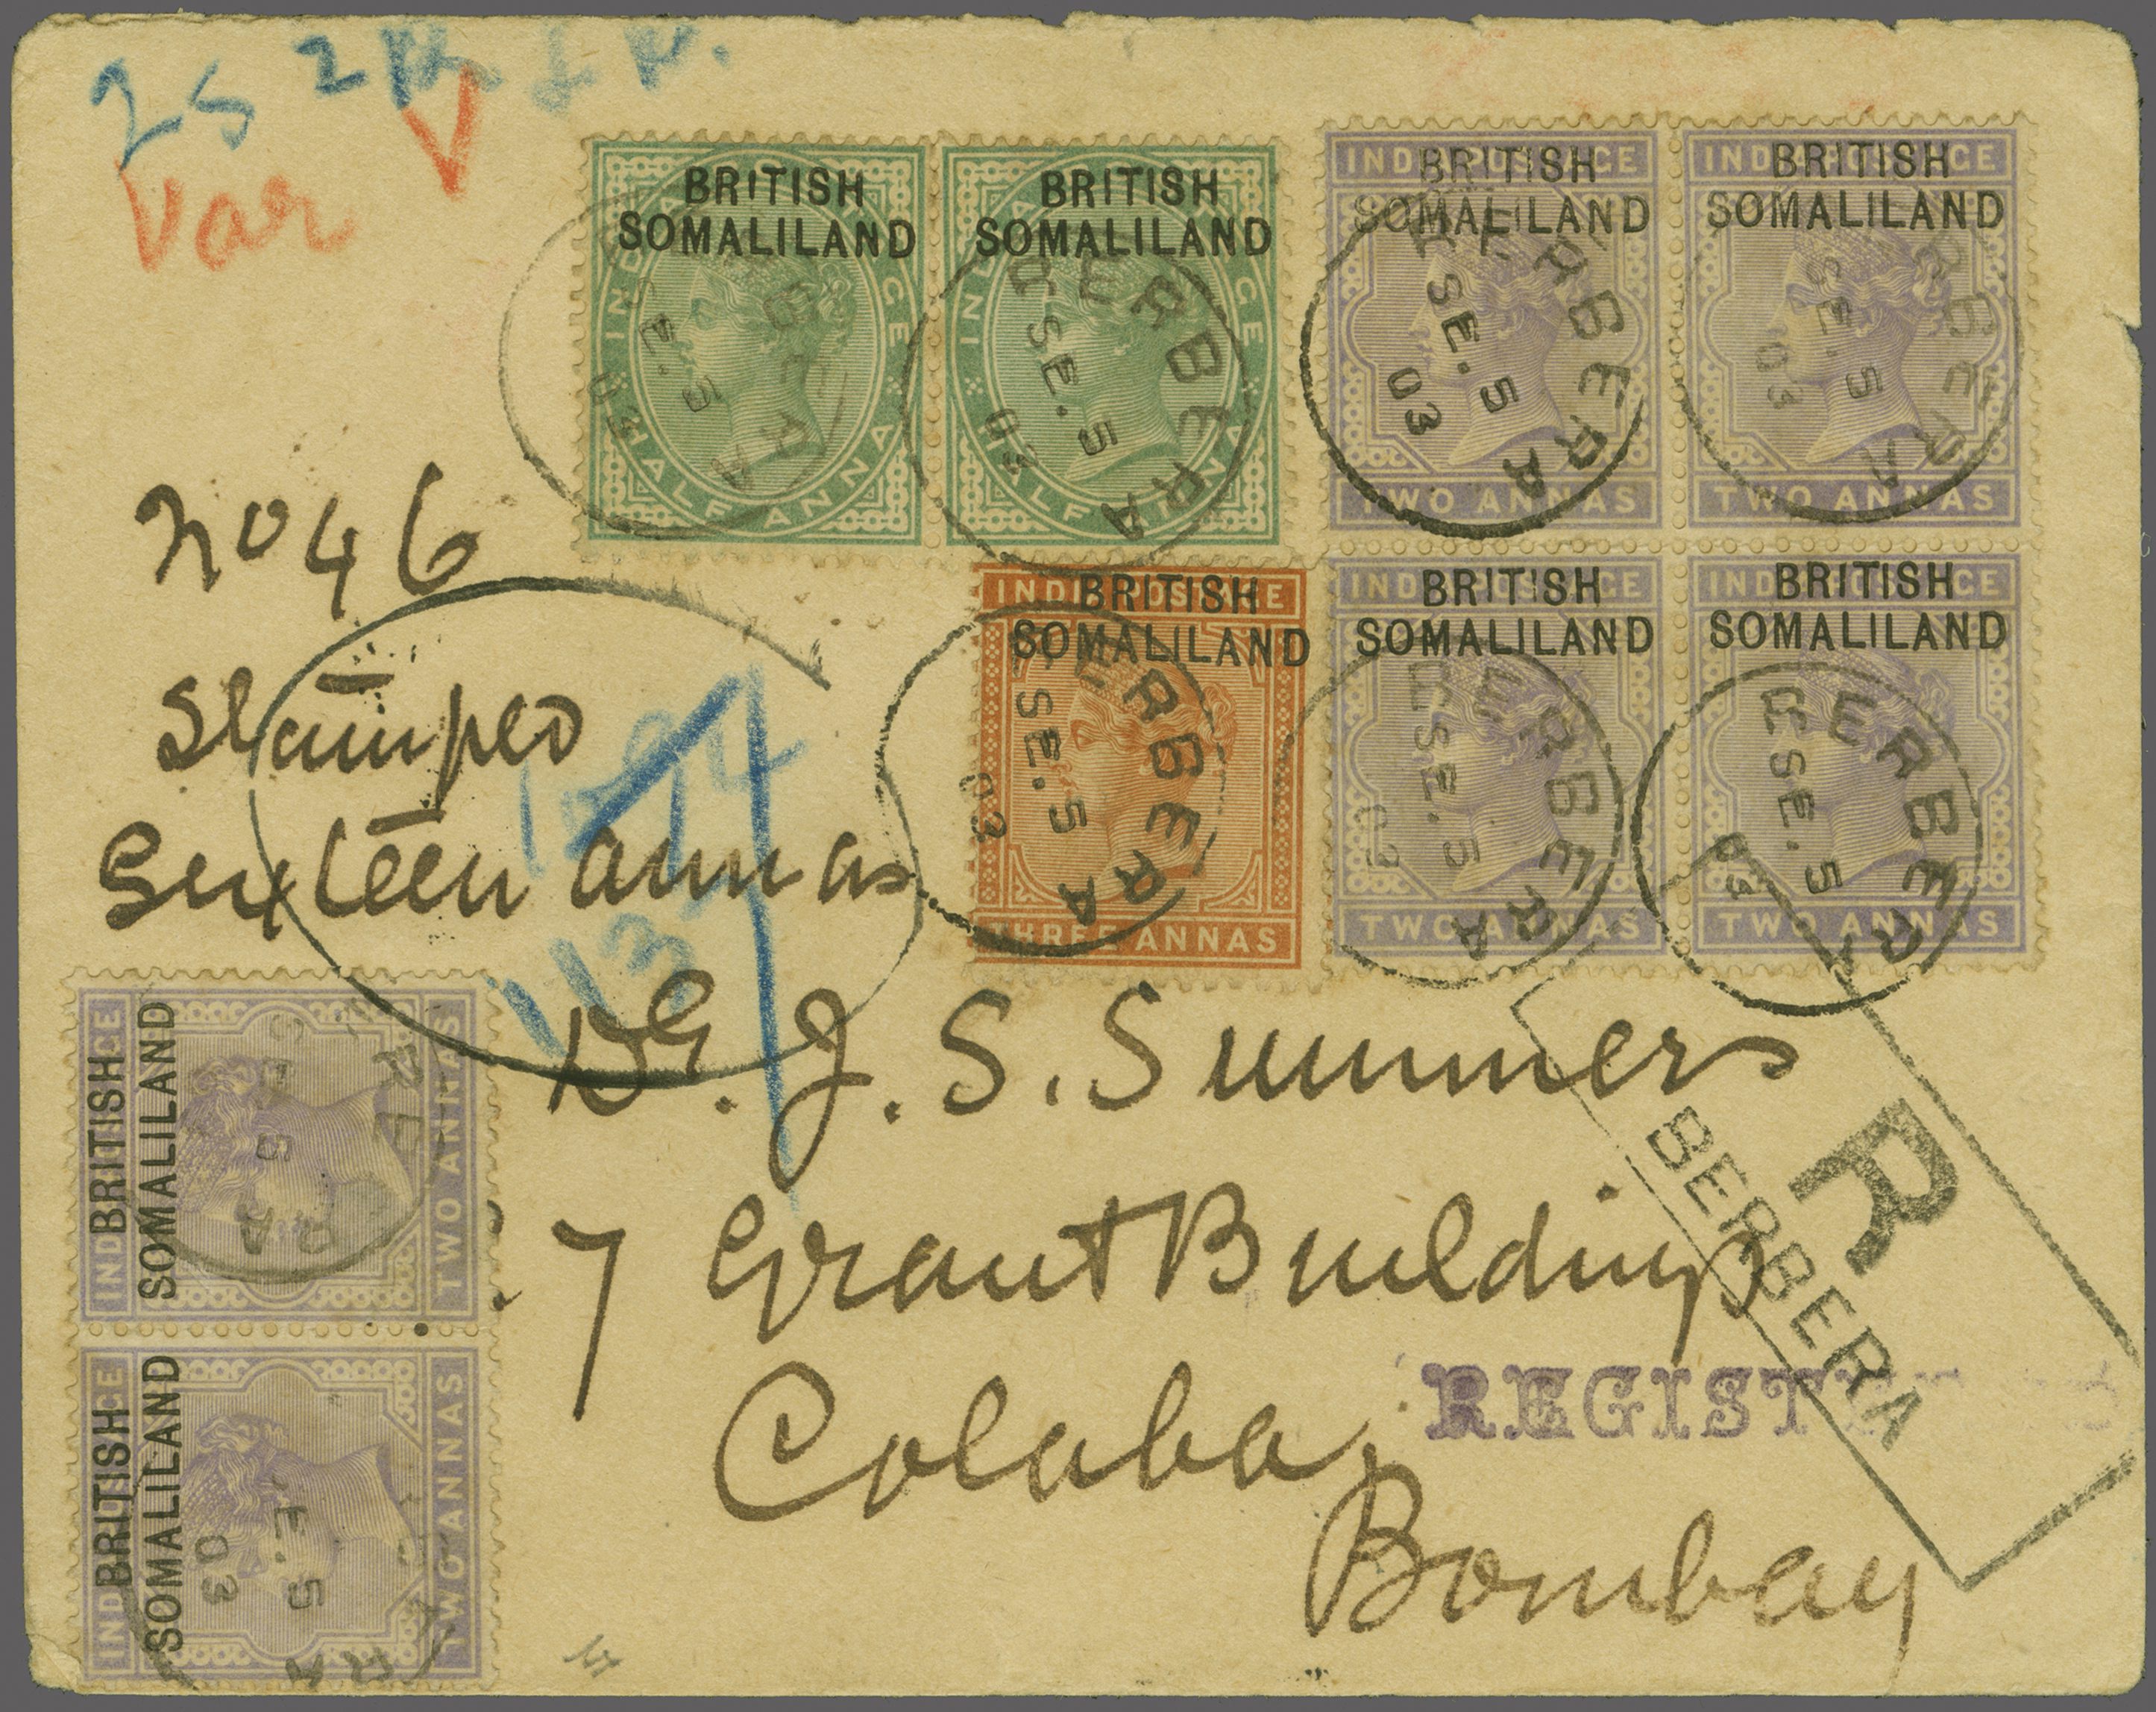 25
Var V
BRITISH
SOMALILAND
HALF ANNA
SE. 5
03
BRITISH
SOMALILAND
HALF ANNA
BERBERA
SE. 5
03
INDIA POSTAGE
BRITISH
SOMALILAND
TWO ANNAS
BERBERA
SE. 5
03
INDIA POSTAGE
BRITISH
SOMALILAND
TWO ANNAS
BERBERA
SE. 5
03
No 46
Stamped
Sixteen annas
INDIA POSTAGE
BRITISH
SOMALILAND
THREE ANNAS
BERBERA
SE. 5
03
INDIA POSTAGE
BRITISH
SOMALILAND
TWO ANNAS
BERBERA
SE. 5
03
INDIA POSTAGE
BRITISH
SOMALILAND
TWO ANNAS
BERBERA
SE. 5
03
INDIA POSTAGE
BRITISH
SOMALILAND
TWO ANNAS
INDIA POSTAGE
BRITISH
SOMALILAND
TWO ANNAS
E. 5
03
J. S. Summers
7 Grant Buildings
Colaba,
Bombay
R
BERBERA
REGIST